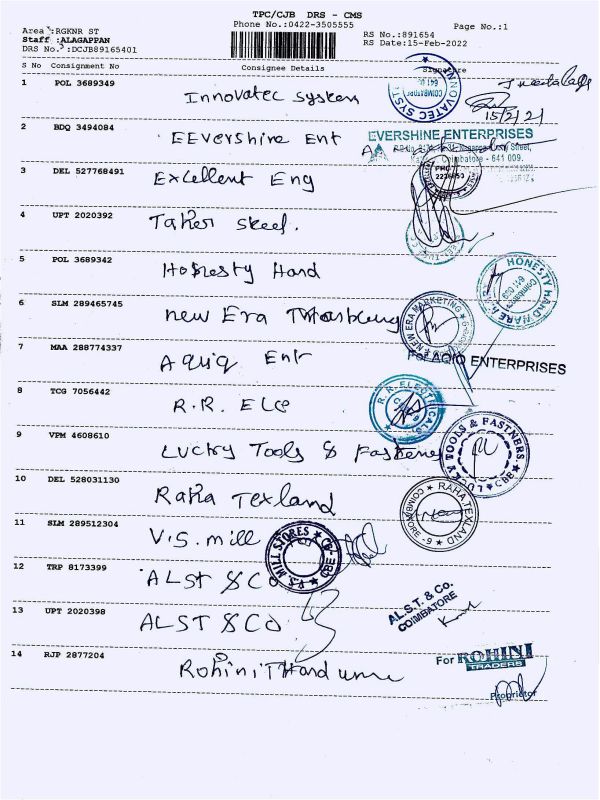 TPC/CJB DRS - CMS
Phone No.:0422-3505555
Page No.:1
Area :RGKNR ST
Staff :ALAGAPPAN
DRS No.:DCJB89165401
RS No.:891654
RS Date:15-Feb-2022
S No Consignment No Consignee Details Signature
1 POL 3689349 Innovatec System
INNOVATEC SYST
COIMBATORE
15/2/21
2 BDQ 3494084 EEvershine Ent
EVERSHINE ENTERPRISES
Street,
Coimbatore - 641 009.
3 DEL 527768491 Excellent Eng
4 UPT 2020392 Taher Steel.
5 POL 3689342 Honesty Hard
HONESTY HARDWARE
Coimbatore
6 SLM 289465745 new Era
NEW ERA MARKETING
7 MAA 288774337 Aqiq Ent
For AQIQ ENTERPRISES
8 TCG 7056442 R.R. Ele
R.R. ELECTRICALS
9 VPM 4608610 Lucky Tools & Fastene
LUCKY TOOLS & FASTNERS
CBE
10 DEL 528031130 Raha Texland
RAHA TEXLAND
COIMBATORE - 6
11 SLM 289512304 V.S. mill
V.S. MILL STORES
12 TRP 8173399 ALST & CO
AL.S.T. & Co.
COIMBATORE
13 UPT 2020398 ALST & CO
14 RJP 2877204 Rohini Hard
For ROHINI
TRADERS
Proprietor